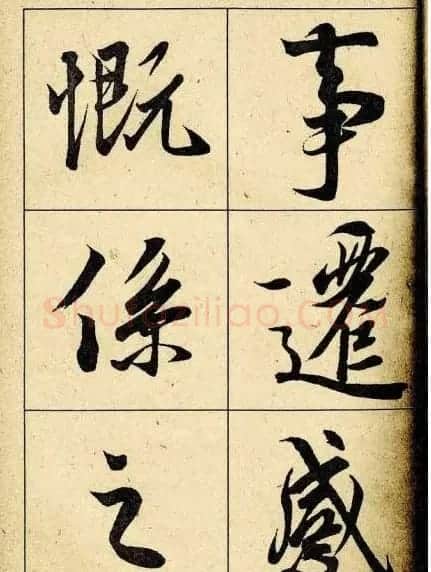 事遷感
慨係之
Shufaziliao.Com